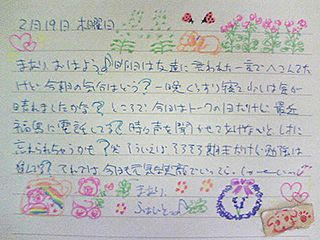 2月19日 木曜日
まおり、おはよう♪ 昨日は友達に言われた一言でへこんでた
けど、今朝の気分はどう？ 一晩ぐっすり寝て少しは気が
晴れましたかな？ ところで、今日はトークの日だけど、最近
電話してる？ 時々声を聞かせてあげないと
忘れられちゃうかも？ そういえばそろそろ期末だけど勉強は
それでは、今日も元気に笑顔でいってらっしゃーい♪
まおり
ふぁいとっ♪